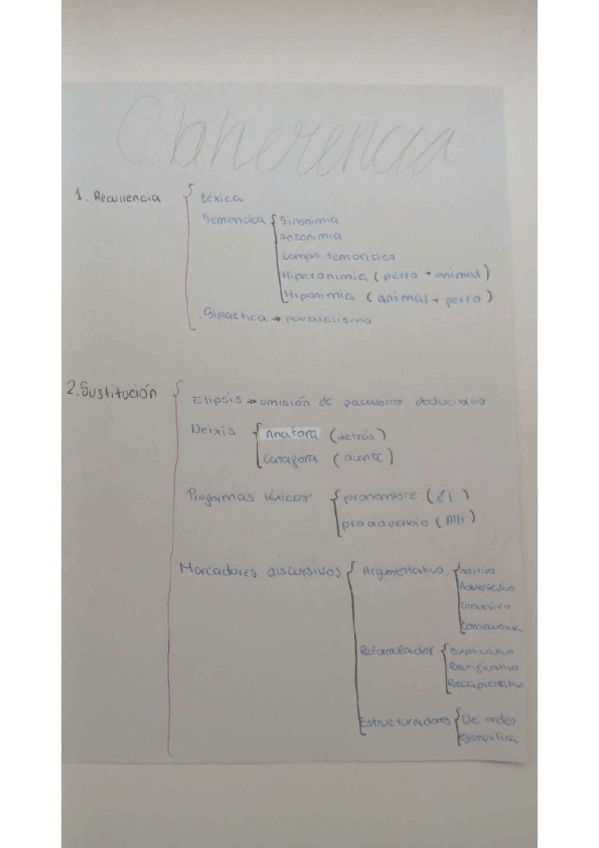 Coherencia
1. Recurrencia
Léxica
Semántica
Sinonimia
antonimia
Campo semántico
Hiperonimia (perro → animal)
Hiponimia (animal → perro)
Sintáctica → paralelismo
2. Sustitución
Elipsis → omisión de palabras deducidas
Deixis
Anáfora (detrás)
Catáfora (delante)
léxicos
pronombre (él)
proadverbio (Allí)
Marcadores discursivos
Argumentativo
Aditivo
Adversativo
Concesivo
Consecutivo
Reformulador
Explicativo
Rectificativo
Recapitulativo
Estructuradores
De orden